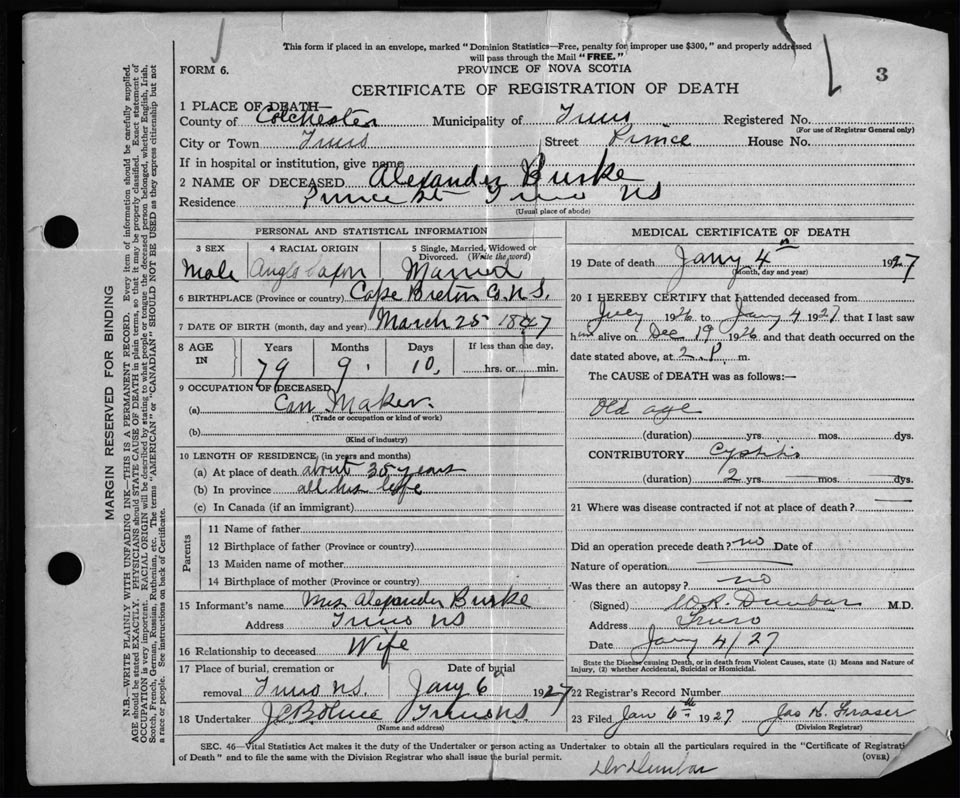 This form if placed in an envelope, marked "Dominion Statistics—Free, penalty for improper use $300," and properly addressed
will pass through the Mail "FREE."
FORM 6.
PROVINCE OF NOVA SCOTIA
3
CERTIFICATE OF REGISTRATION OF DEATH
1 PLACE OF DEATH—
County of Colchester Municipality of Truro Registered No.
(For use of Registrar General only)
City or Town Truro Street Prince House No.
If in hospital or institution, give name
2 NAME OF DECEASED Alexander Burke
Residence Prince St Truro NS
(Usual place of abode)
PERSONAL AND STATISTICAL INFORMATION
3 SEX 4 RACIAL ORIGIN 5 Single, Married, Widowed or Divorced. (Write the word)
Male Anglo Saxon Married
6 BIRTHPLACE (Province or country) Cape Breton Co. N.S.
7 DATE OF BIRTH (month, day and year) March 25 1847
8 AGE IN Years Months Days If less than one day,
79 9 10, hrs. or min.
9 OCCUPATION OF DECEASED
(a) Can Maker
(Trade or occupation or kind of work)
(b)
(Kind of industry)
10 LENGTH OF RESIDENCE (in years and months)
(a) At place of death about 35 years
(b) In province all his life
(c) In Canada (if an immigrant)
Parents
11 Name of father
12 Birthplace of father (Province or country)
13 Maiden name of mother
14 Birthplace of mother (Province or country)
15 Informant's name Mrs Alexander Burke
Address Truro NS
16 Relationship to deceased Wife
17 Place of burial, cremation or Date of burial
removal Truro N.S. Jany 6 1927
18 Undertaker Truro N.S.
(Name and address)
MEDICAL CERTIFICATE OF DEATH
19 Date of death Jany 4 1927
(Month, day and year)
20 I HEREBY CERTIFY that I attended deceased from
July 1926 to Jany 4 1927 that I last saw
him alive on Dec 19 1926 and that death occurred on the
date stated above, at 2. P. m.
The CAUSE of DEATH was as follows:—
Old age
(duration) yrs. mos. dys.
CONTRIBUTORY Cystitis
(duration) 2 yrs. mos. dys.
21 Where was disease contracted if not at place of death?
Did an operation precede death? no Date of
Nature of operation
Was there an autopsy? no
(Signed) W.R. Dunbar M.D.
Address Truro
Date Jany 4/27
State the Disease causing Death, or in death from Violent Causes, state (1) Means and Nature of
Injury, (2) whether Accidental, Suicidal or Homicidal.
22 Registrar's Record Number
23 Filed Jan 6th 1927 Jas H. Fraser
(Division Registrar)
SEC. 46—Vital Statistics Act makes it the duty of the Undertaker or person acting as Undertaker to obtain all the particulars required in the "Certificate of Registration
of Death" and to file the same with the Division Registrar who shall issue the burial permit.
(OVER)
Dr Dunbar
MARGIN RESERVED FOR BINDING
N.B.—WRITE PLAINLY WITH UNFADING INK—THIS IS A PERMANENT RECORD. Every item of information should be carefully supplied.
AGE should be stated EXACTLY. PHYSICIANS should STATE CAUSE OF DEATH in plain terms, so that it may be properly classified. Exact statement of
OCCUPATION is very important. RACIAL ORIGIN will be described by stating to what people or tongue the deceased person belonged, whether English, Irish,
Scotch, French, German, Russian, Ruthenian, etc. The terms "AMERICAN" or "CANADIAN" SHOULD NOT BE USED as they express citizenship but not
a race or people. See instructions on back of Certificate.